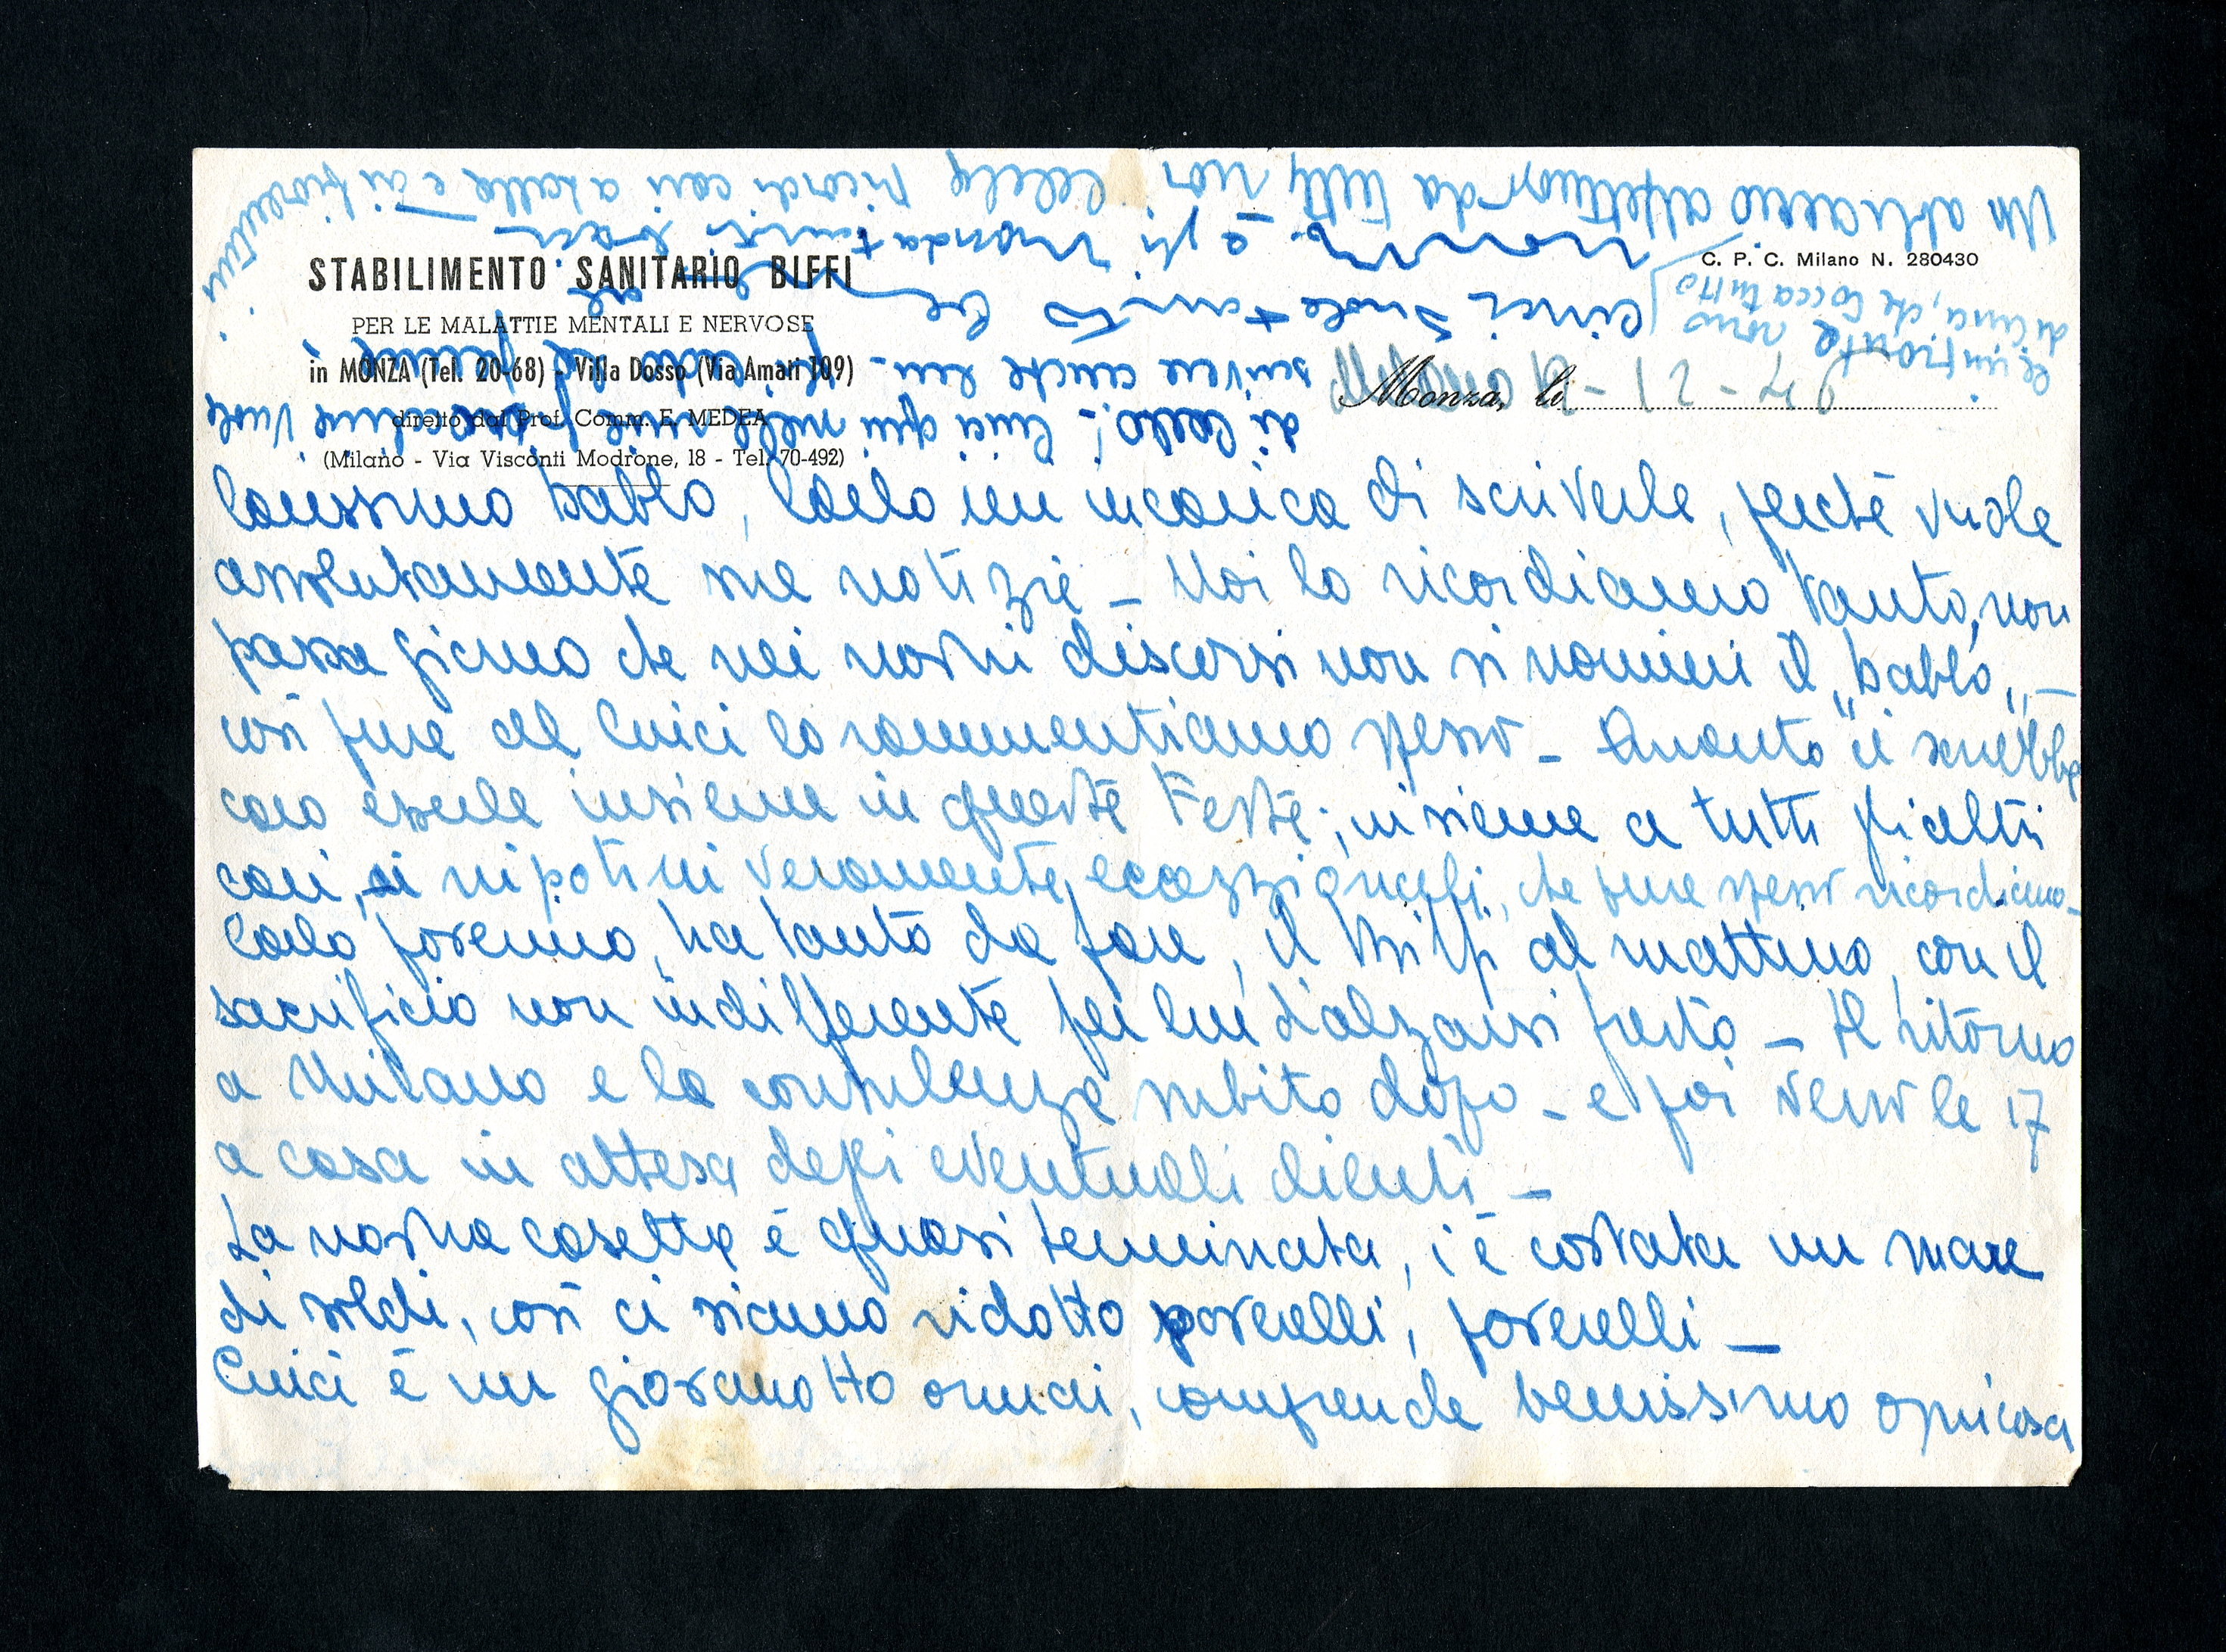 STABILIMENTO SANITARIO BIFFI
PER LE MALATTIE MENTALI E NERVOSE
in MONZA (Tel. 20-68) - Villa Dosso (Via Amati 109)
diretto dal Prof. Comm. E. MEDEA
(Milano - Via Visconti Modrone, 18 - Tel. 70-492)
C. P. C. Milano N. 280430
Monza, li
Milano 19-12-46
Carissimo Pablo, Carlo mi incarica di scriverle, perchè vuole
assolutamente sue notizie - Noi lo ricordiamo tanto, non
passa giorno che nei nostri discorsi non si nomini il "Pablo" -
così pure al Cinci lo rammentiamo spesso - Quanto ci sarebbe
caro essere insieme in queste Feste; insieme a tutti gli altri
cari, ai nipotini veramente eccezzionali, che pure spesso ricordiamo -
Carlo poverino, ha tanto da fare, il Biffi al mattino, con il
sacrificio non indifferente per lui d'alzarsi presto - Il ritorno
a Milano e la consulenza subito dopo - e poi verso le 17
a casa in attesa degli eventuali clienti -
La nostra casetta è quasi terminata, c'è costata un mare
di soldi, così ci siamo ridotto poverelli, poverelli -
Cinci è un giovanotto ormai, comprende benissimo ogni cosa
di Carlo! - Cinci qui nelle mie vuole
scrivere anche lui -
Cinci vuole tanto
e gli manda tanti baci
Un abbraccio affettuoso da tutti noi. ricordi cari a